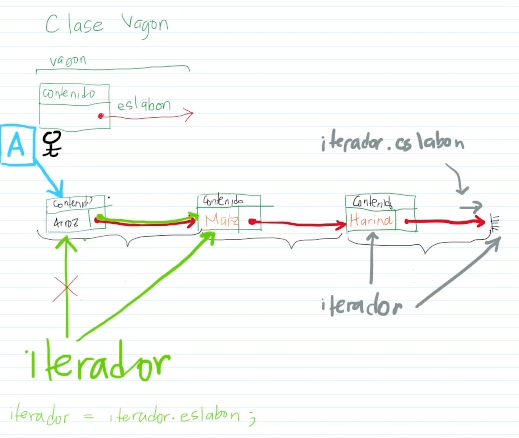 Clase Vagon
vagon
contenido
eslabon
A
iterador.eslabon
Contenido
Contenido
Contenido
Arroz
Maiz
Harina
iterador
iterador
iterador = iterador.eslabon;